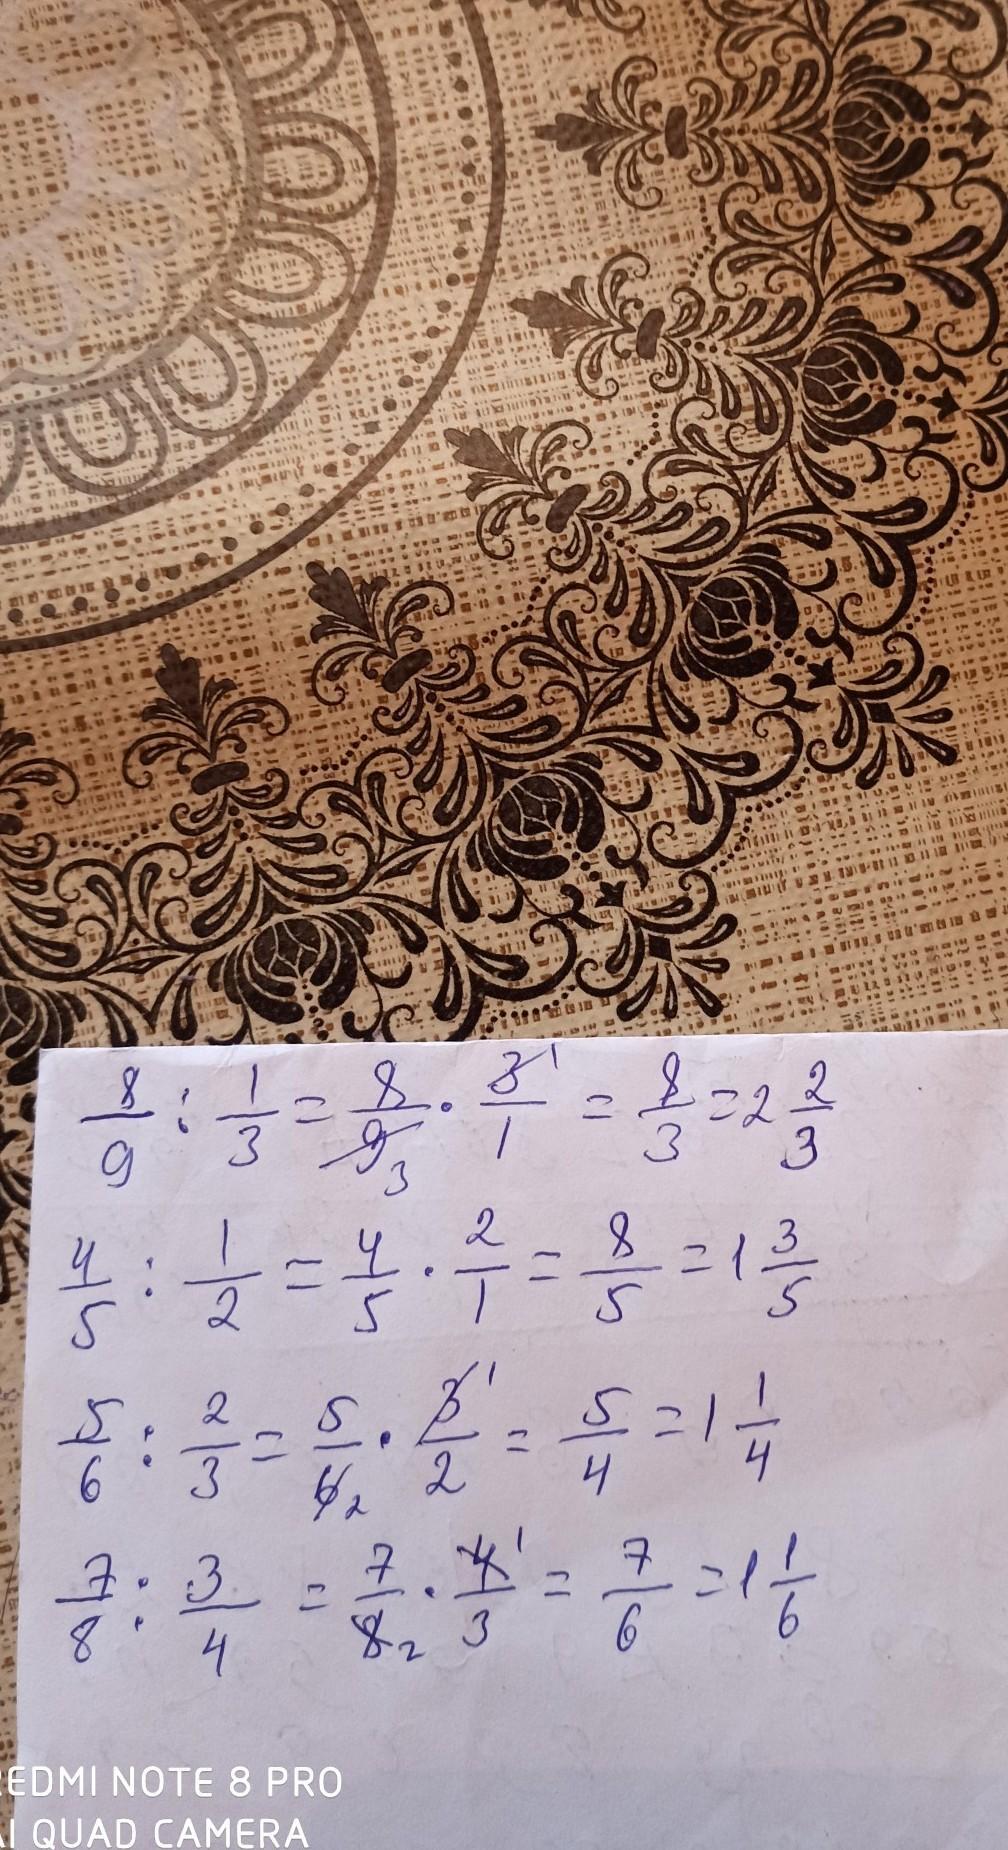 8/9 : 1/3 = 8/9 3 · 3/1 1 = 8/3 = 2 2/3
4/5 : 1/2 = 4/5 · 2/1 = 8/5 = 1 3/5
5/6 : 2/3 = 5/6 2 · 3/2 1 = 5/4 = 1 1/4
7/8 : 3/4 = 7/8 2 · 4/3 1 = 7/6 = 1 1/6
REDMI NOTE 8 PRO
AI QUAD CAMERA